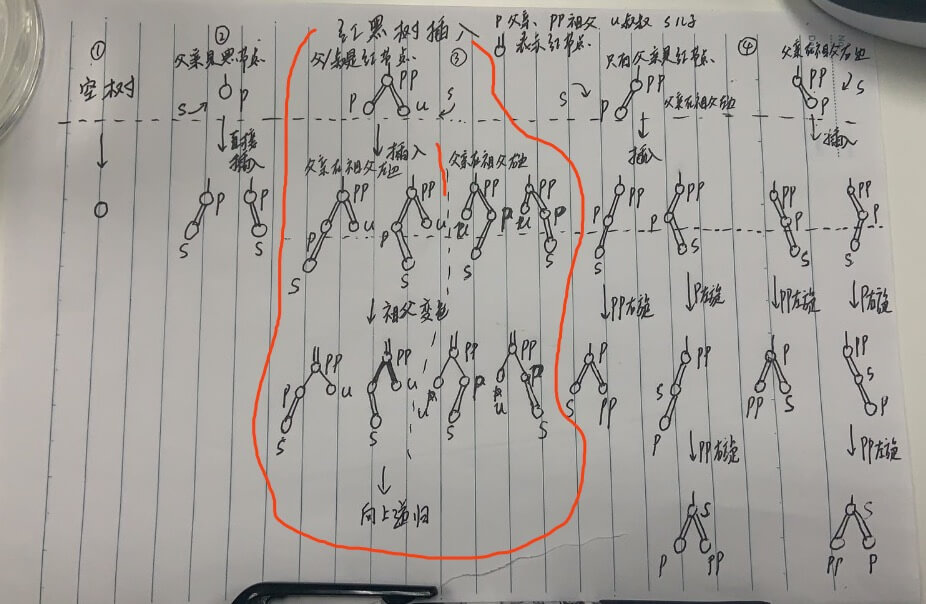 红黑树插入
P父亲、PP祖父 U叔叔 S儿子
表示红节点.
①
空树
②
父亲是黑节点
P
S
直接
插入
S
S
P
P
③
父/叔是红节点.
PP
P
U
S
插入
父亲在祖父左边
父亲在祖父右边
PP
P
U
S
PP
P
U
S
PP
P
U
S
PP
P
U
S
祖父变色
PP
P
U
S
PP
U
S
PP
U
P
S
PP
U
P
S
向上递归
只有父亲是红节点.
PP
S
P
父亲在祖父左边
插入
PP
P
S
PP
P
S
PP右旋
P左旋
P
S
PP
PP
S
P
PP右旋
S
P
PP
④
父亲在祖父右边
PP
P
S
插入
PP
P
S
PP
P
S
PP左旋
P右旋
P
PP
S
PP
S
P
PP左旋
S
PP
P